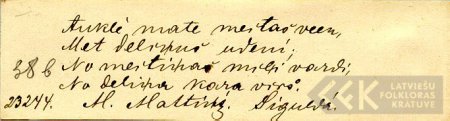 Auklē māte meitas veen,
Met delinus ūdenī;
No meitiņas mīļi vārdi,
38b
No deliņa kara vīrs.
23244. M. Mattiņ. Siguldā.
LATVIEŠU
FOLKLORAS
KRĀTUVE